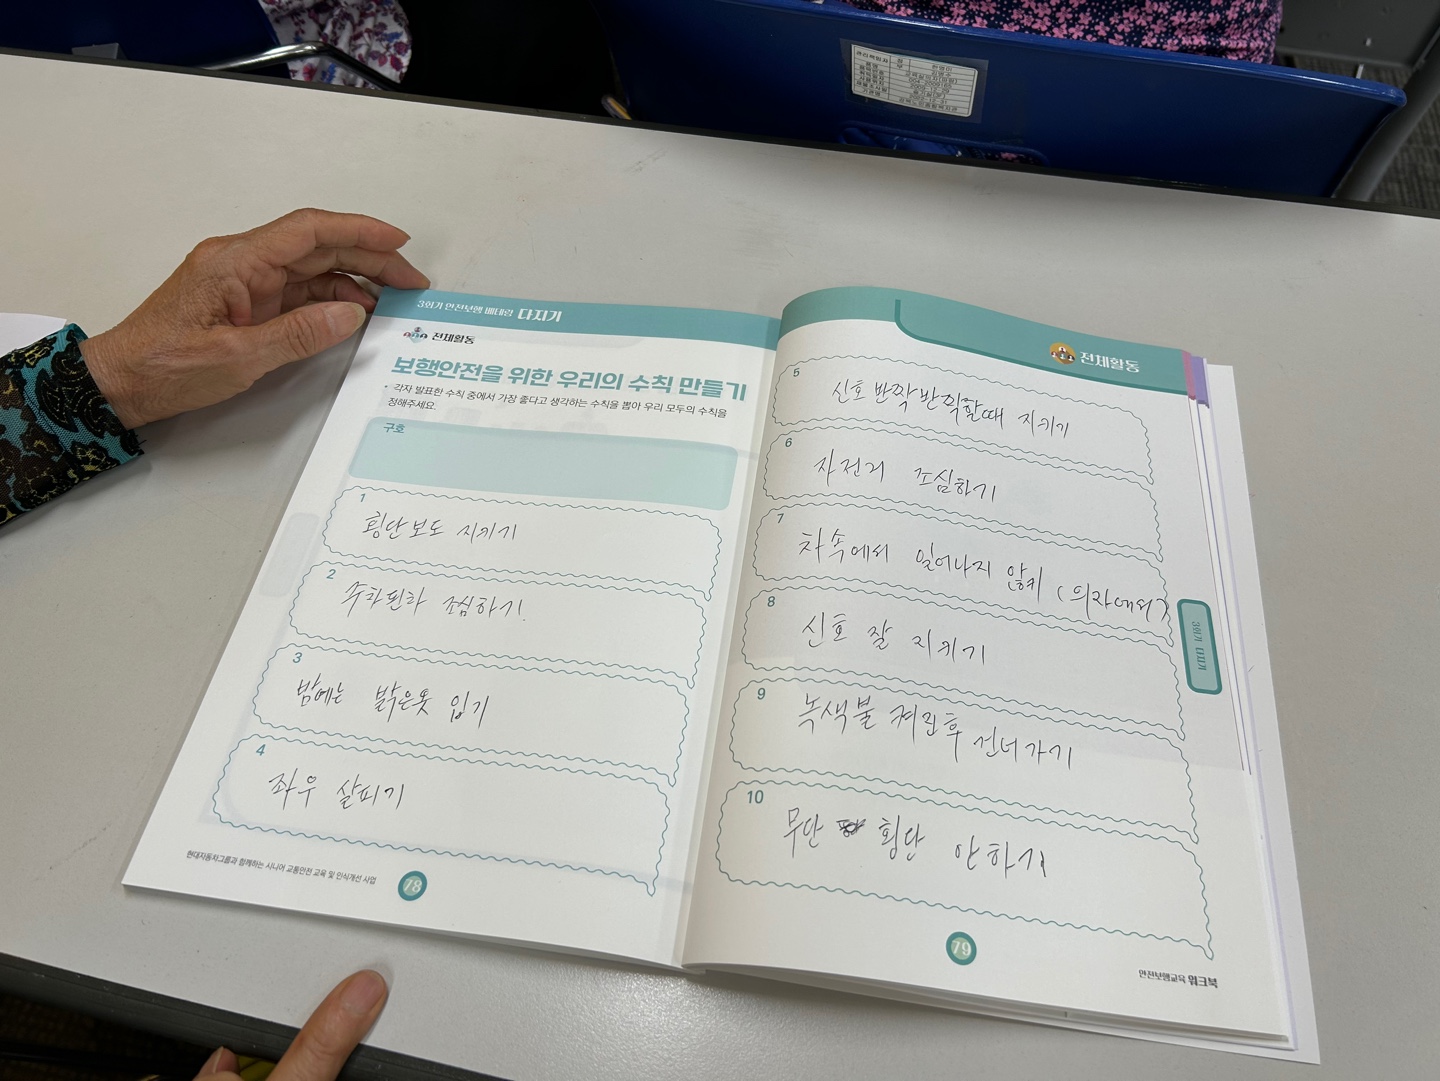 3회기 안전보행 베테랑 다지기
전체활동
보행안전을 위한 우리의 수칙 만들기
• 각자 발표한 수칙 중에서 가장 좋다고 생각하는 수칙을 뽑아 우리 모두의 수칙을
정해주세요.
구호
1
횡단보도 지키기
2
조심하기!
3
밤에는 밝은옷 입기
4
좌우 살피기
현대자동차그룹과 함께하는 시니어 교통안전 교육 및 인식개선 사업
78
전체활동
5
신호 반짝반짝할때 지키기
6
자전거 조심하기
7
차속에서 일어나지 않기 (의자에서)
8
신호 잘 지키기
9
녹색불 켜진후 건너가기
10
무단 횡단 안하기
3회기 다지기
79
안전보행교육 워크북